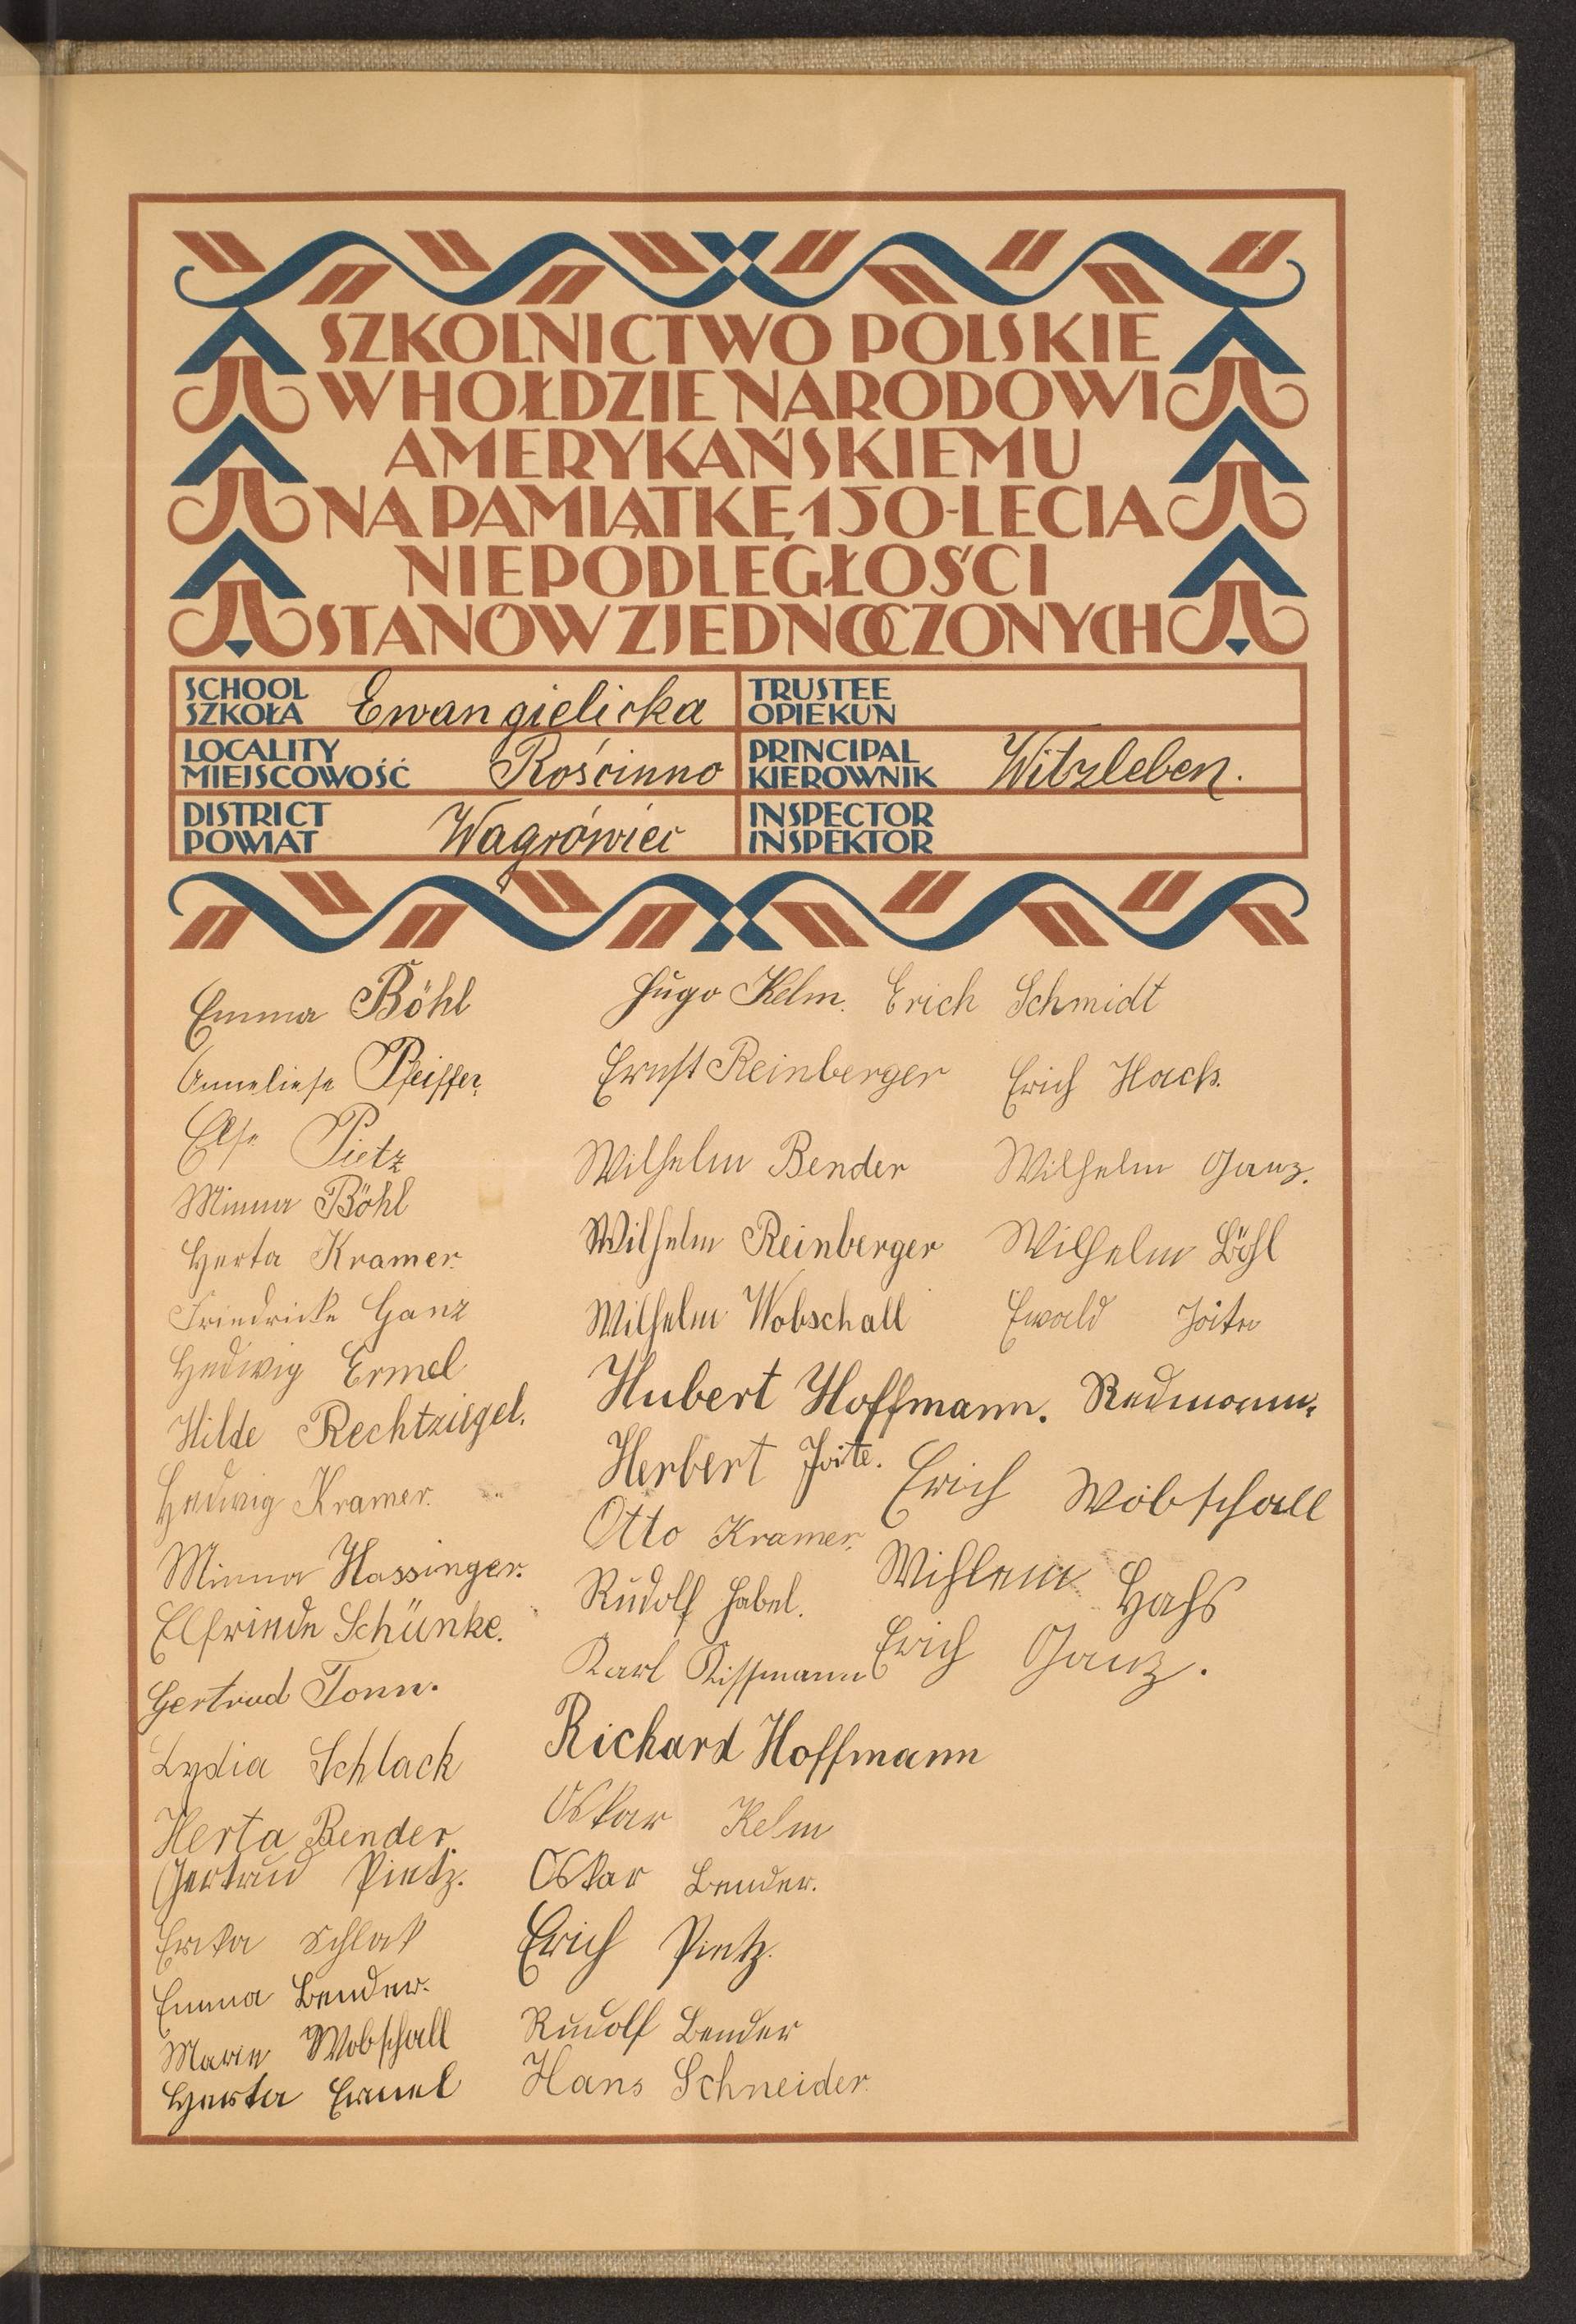 SZKOLNICTWO POLSKIE
W HOŁDZIE NARODOWI
AMERYKAŃSKIEMU
NA PAMIĄTKĘ 150-LECIA
NIEPODLEGŁOŚCI
STANÓW ZJEDNOCZONYCH
SCHOOL
SZKOŁA Ewangielicka
TRUSTEE
OPIEKUN
LOCALITY
MIEJSCOWOŚĆ Rościnno
PRINCIPAL
KIEROWNIK Witzleben.
DISTRICT
POWIAT Wagrówiec
INSPECTOR
INSPEKTOR
Emma Böhl
Anneliese Pfeiffer,
Else Pietz
Minna Böhl
Herta Kramer.
Friedricke Ganz
Hedwig Ermel
Hilde Rechtziegel.
Hedwig Kramer.
Minna Hassinger.
Elfriede Schünke.
Gertrud Tonn.
Lydia Schlack
Herta Bender
Gertrud Pietz.
Erika Schlak
Emma Bender.
Marie Wobschall
Herta Ermel
Hugo Kelm.
Ernst Reinberger
Wilhelm Bender
Wilhelm Reinberger
Wilhelm Wobschall
Hubert Hoffmann.
Herbert Joite.
Otto Kramer.
Rudolf Habel.
Karl Rissmann
Richard Hoffmann
Oskar Kelm
Oskar Bender.
Erich Pietz.
Rudolf Bender
Hans Schneider
Erich Schmidt
Erich Hack.
Wilhelm Ganz.
Wilhelm Böhl
Ewald Joite
Redmann.
Erich Wobschall
Wihlem Hahs
Erich Ganz.